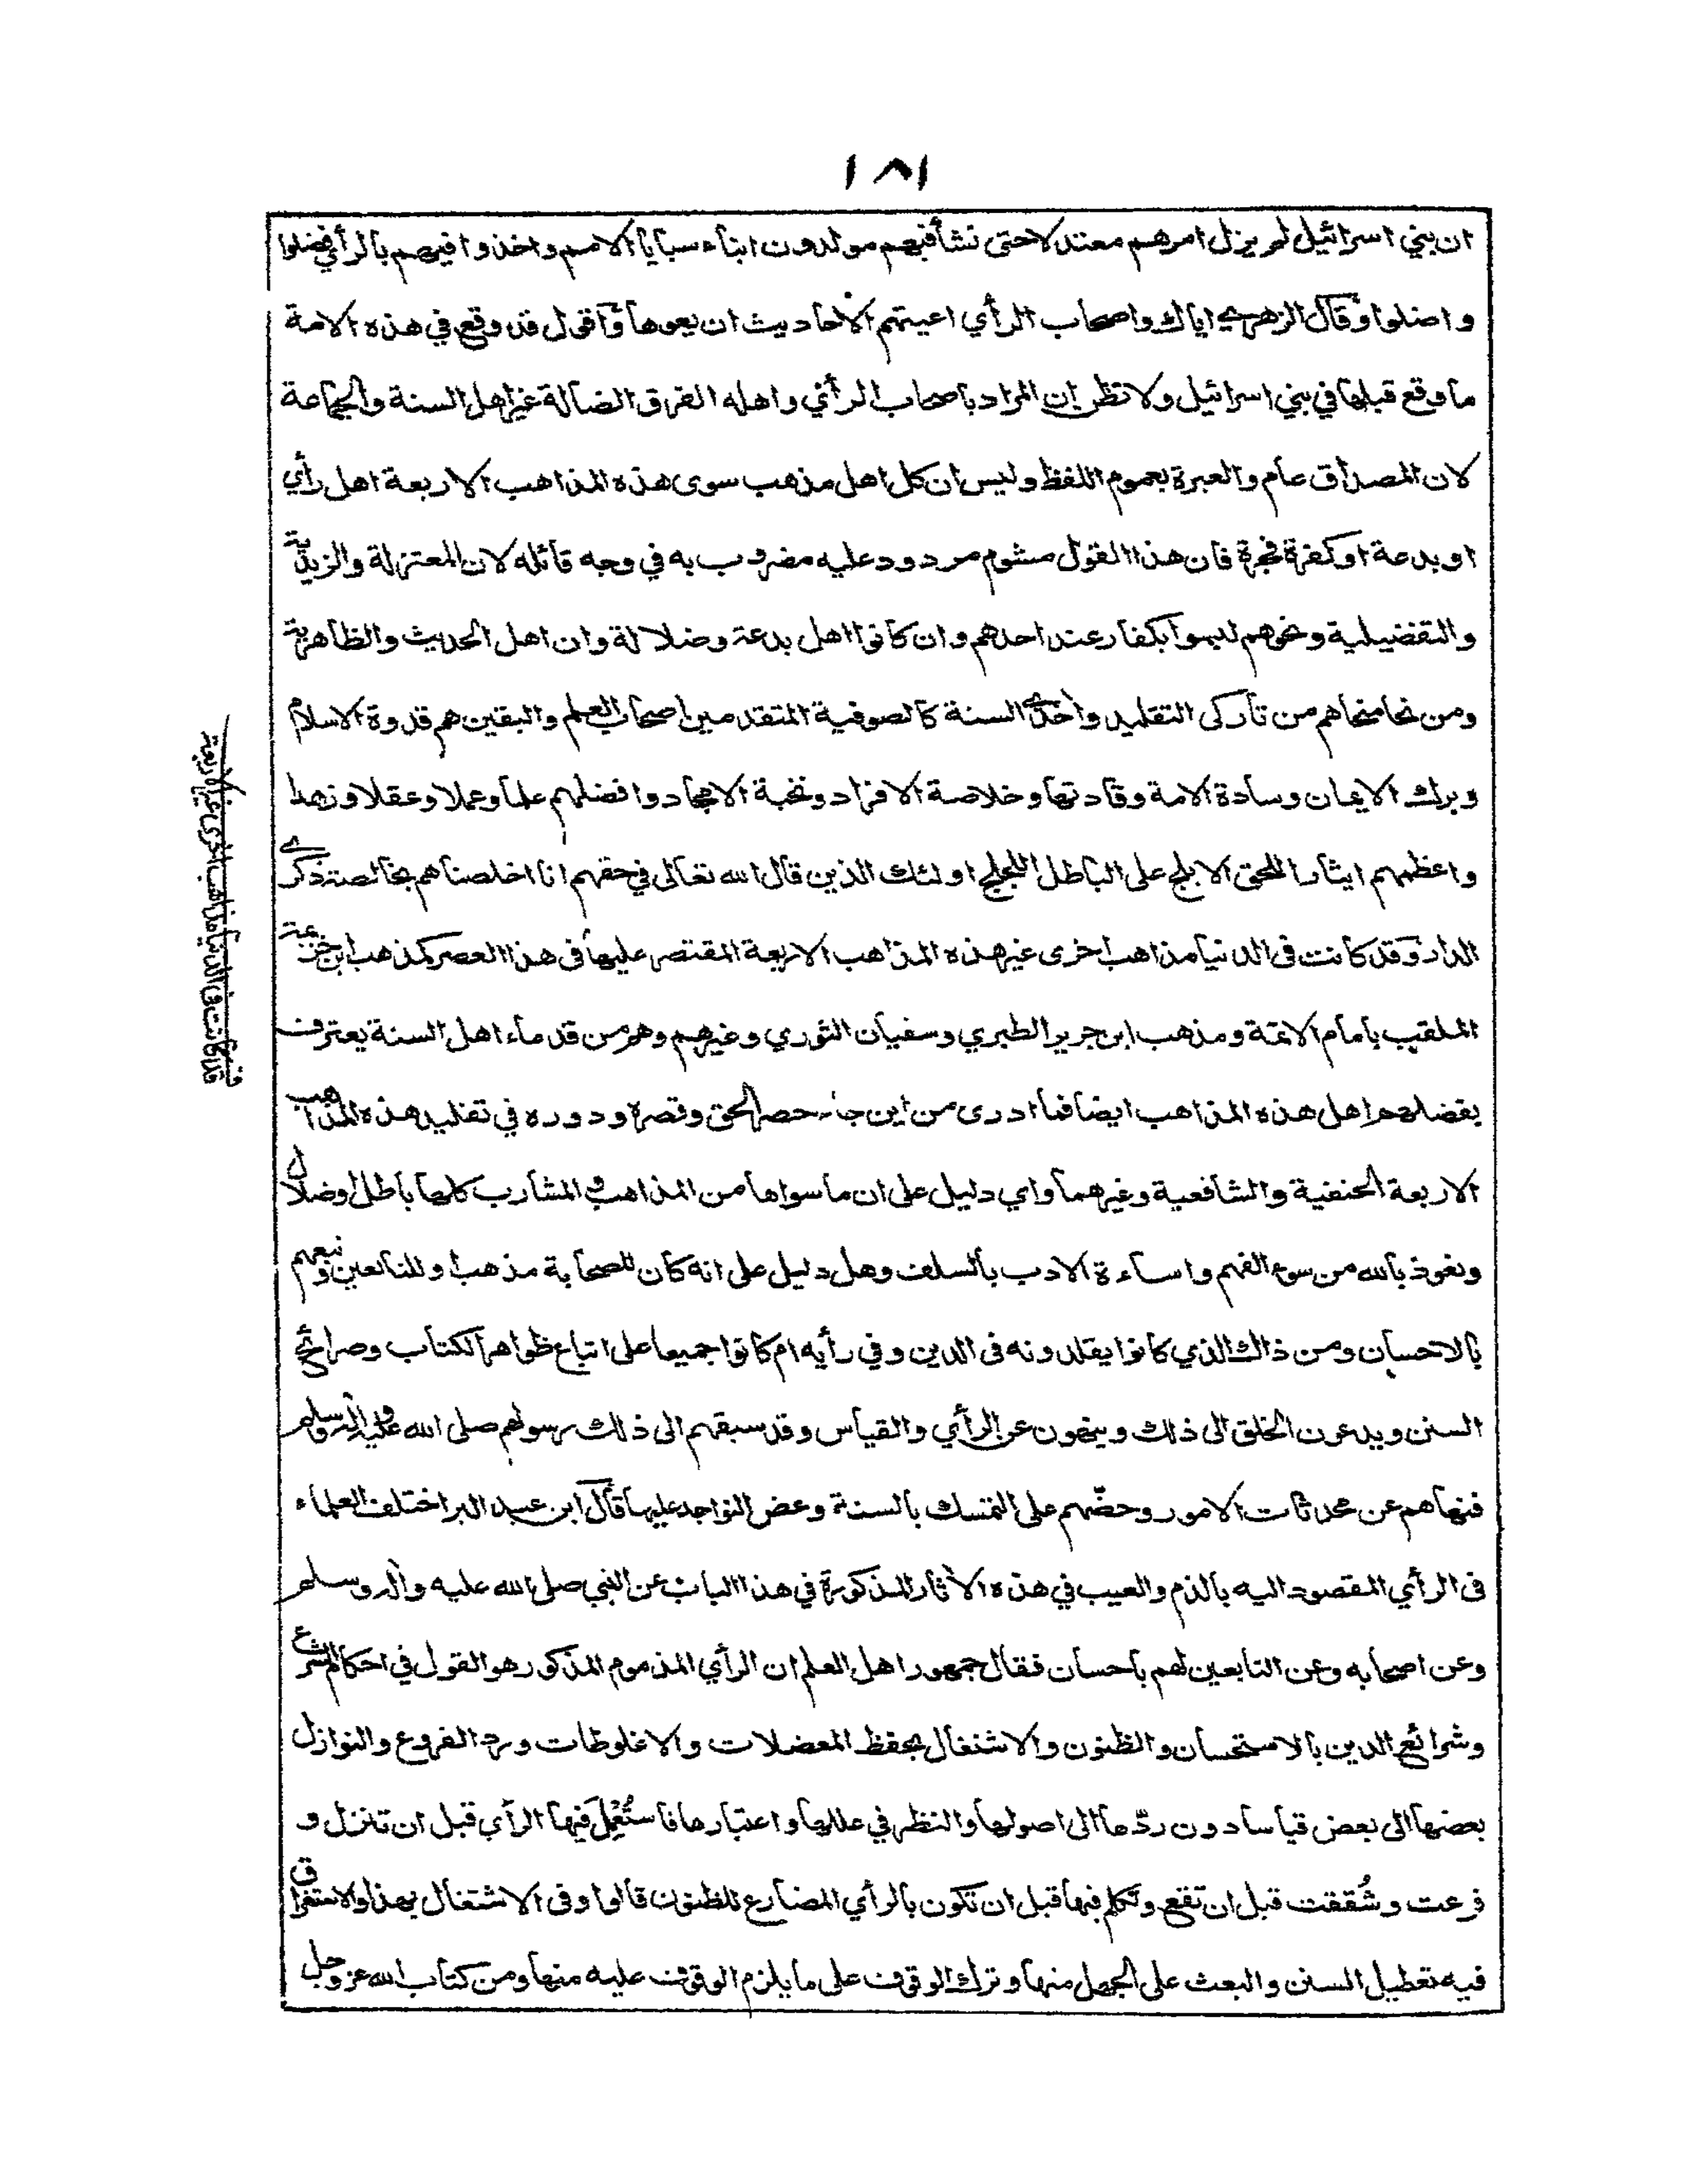 ١٨١
ان بني اسرائيل لم يزل امرهم معتدلا حتى نشأ فيهم مولدون ابناء سبايا الامم واخذوا فيهم بالرأي فضلوا
واضلوا وقال الزهري اياك واصحاب الرأي اعيتهم الاحاديث ان يعوها وأقول قد وقع في هذه الامة
ما وقع قبلها في بني اسرائيل ولا تظن ان المراد باصحاب الرأي واهله الفرق الضالة غير اهل السنة والجماعة
لان المصداق عام والعبرة بعموم اللفظ وليس ان كل اهل مذهب سوى هذه المذاهب الاربعة اهل رأي
او بدعة او كفرة فجرة فان هذا القول مشوم مردود عليه مضروب به في وجه قائله لان المعتزلة والزيدية
والتفضيلية ونحوهم ليسوا بكفار عند احدهم وان كانوا اهل بدعة وضلالة وان اهل الحديث والظاهرية
ومن نحا منحاهم من تاركى التقليد وآخذي السنة كالصوفية المتقدمين اصحاب العلم واليقين هم قدوة الاسلام
وبرك الايمان وسادة الامة وقادتها وخلاصة الافراد ونخبة الامجاد وافضلهم علما وعملا وعقلا وزهدا
واعظمهم ايثارا للحق الابلج على الباطل اللجلج اولئك الذين قال الله تعالى في حقهم انا اخلصناهم بخالصة ذكرى
الدار وقد كانت فى الدنيا مذاهب اخرى غير هذه المذاهب الاربعة المقتصر عليها فى هذا العصر كمذهب ابن خزيمة
الملقب بامام الائمة ومذهب ابن جرير الطبري وسفيان الثوري وغيرهم وهم من قدماء اهل السنة يعترف
بفضلهم اهل هذه المذاهب ايضا فما ادرى من اين جاء حصر الحق وقصره ودوره في تقليد هذه المذاهب
الاربعة الحنفية والشافعية وغيرهما واي دليل على ان ما سواها من المذاهب والمشارب كلها باطل وضلال
ونعوذ بالله من سوء الفهم واساءة الادب بالسلف وهل دليل على انه كان للصحابة مذهب او للتابعين وتبعهم
بالاحسان ومن ذاك الذي كانوا يقلدونه فى الدين وفي رأيه ام كانوا جميعا على اتباع ظواهر الكتاب وصرائح
السنن ويدعون الخلق الى ذلك وينهون عن الرأي والقياس وقد سبقهم الى ذلك رسولهم صلى الله عليه وآله وسلم
فنهاهم عن محدثات الامور وحضّهم على التمسك بالسنة وعض النواجد عليها قال ابن عبد البر اختلف العلماء
فى الرأي المقصود اليه بالذم والعيب في هذه الآثار المذكورة في هذا الباب عن النبي صلى الله عليه وآله وسلم
وعن اصحابه وعن التابعين لهم باحسان فقال جمهور اهل العلم ان الرأي المذموم المذكور هو القول في احكام الشرع
وشرائع الدين بالاستحسان والظنون والاشتغال بحفظ المعضلات والاغلوطات ورد الفروع والنوازل
بعضها الى بعض قياسا دون ردّها الى اصولها والنظر في عللها واعتبارها فاستُعْمِلَ فيها الرأي قبل ان تنزل و
فرعت وشُققت قبل ان تقع وتكلم فيها قبل ان تكون بالرأي المضارع للظنون قالوا وفى الاشتغال بهذا والاستغراق
فيه تعطيل السنن والبعث على الجهل منها وترك الوقوف على ما يلزم الوقوف عليه منها ومن كتاب الله عز وجل
قد كانت في الدنيا مذاهب اخرى غير الاربعة